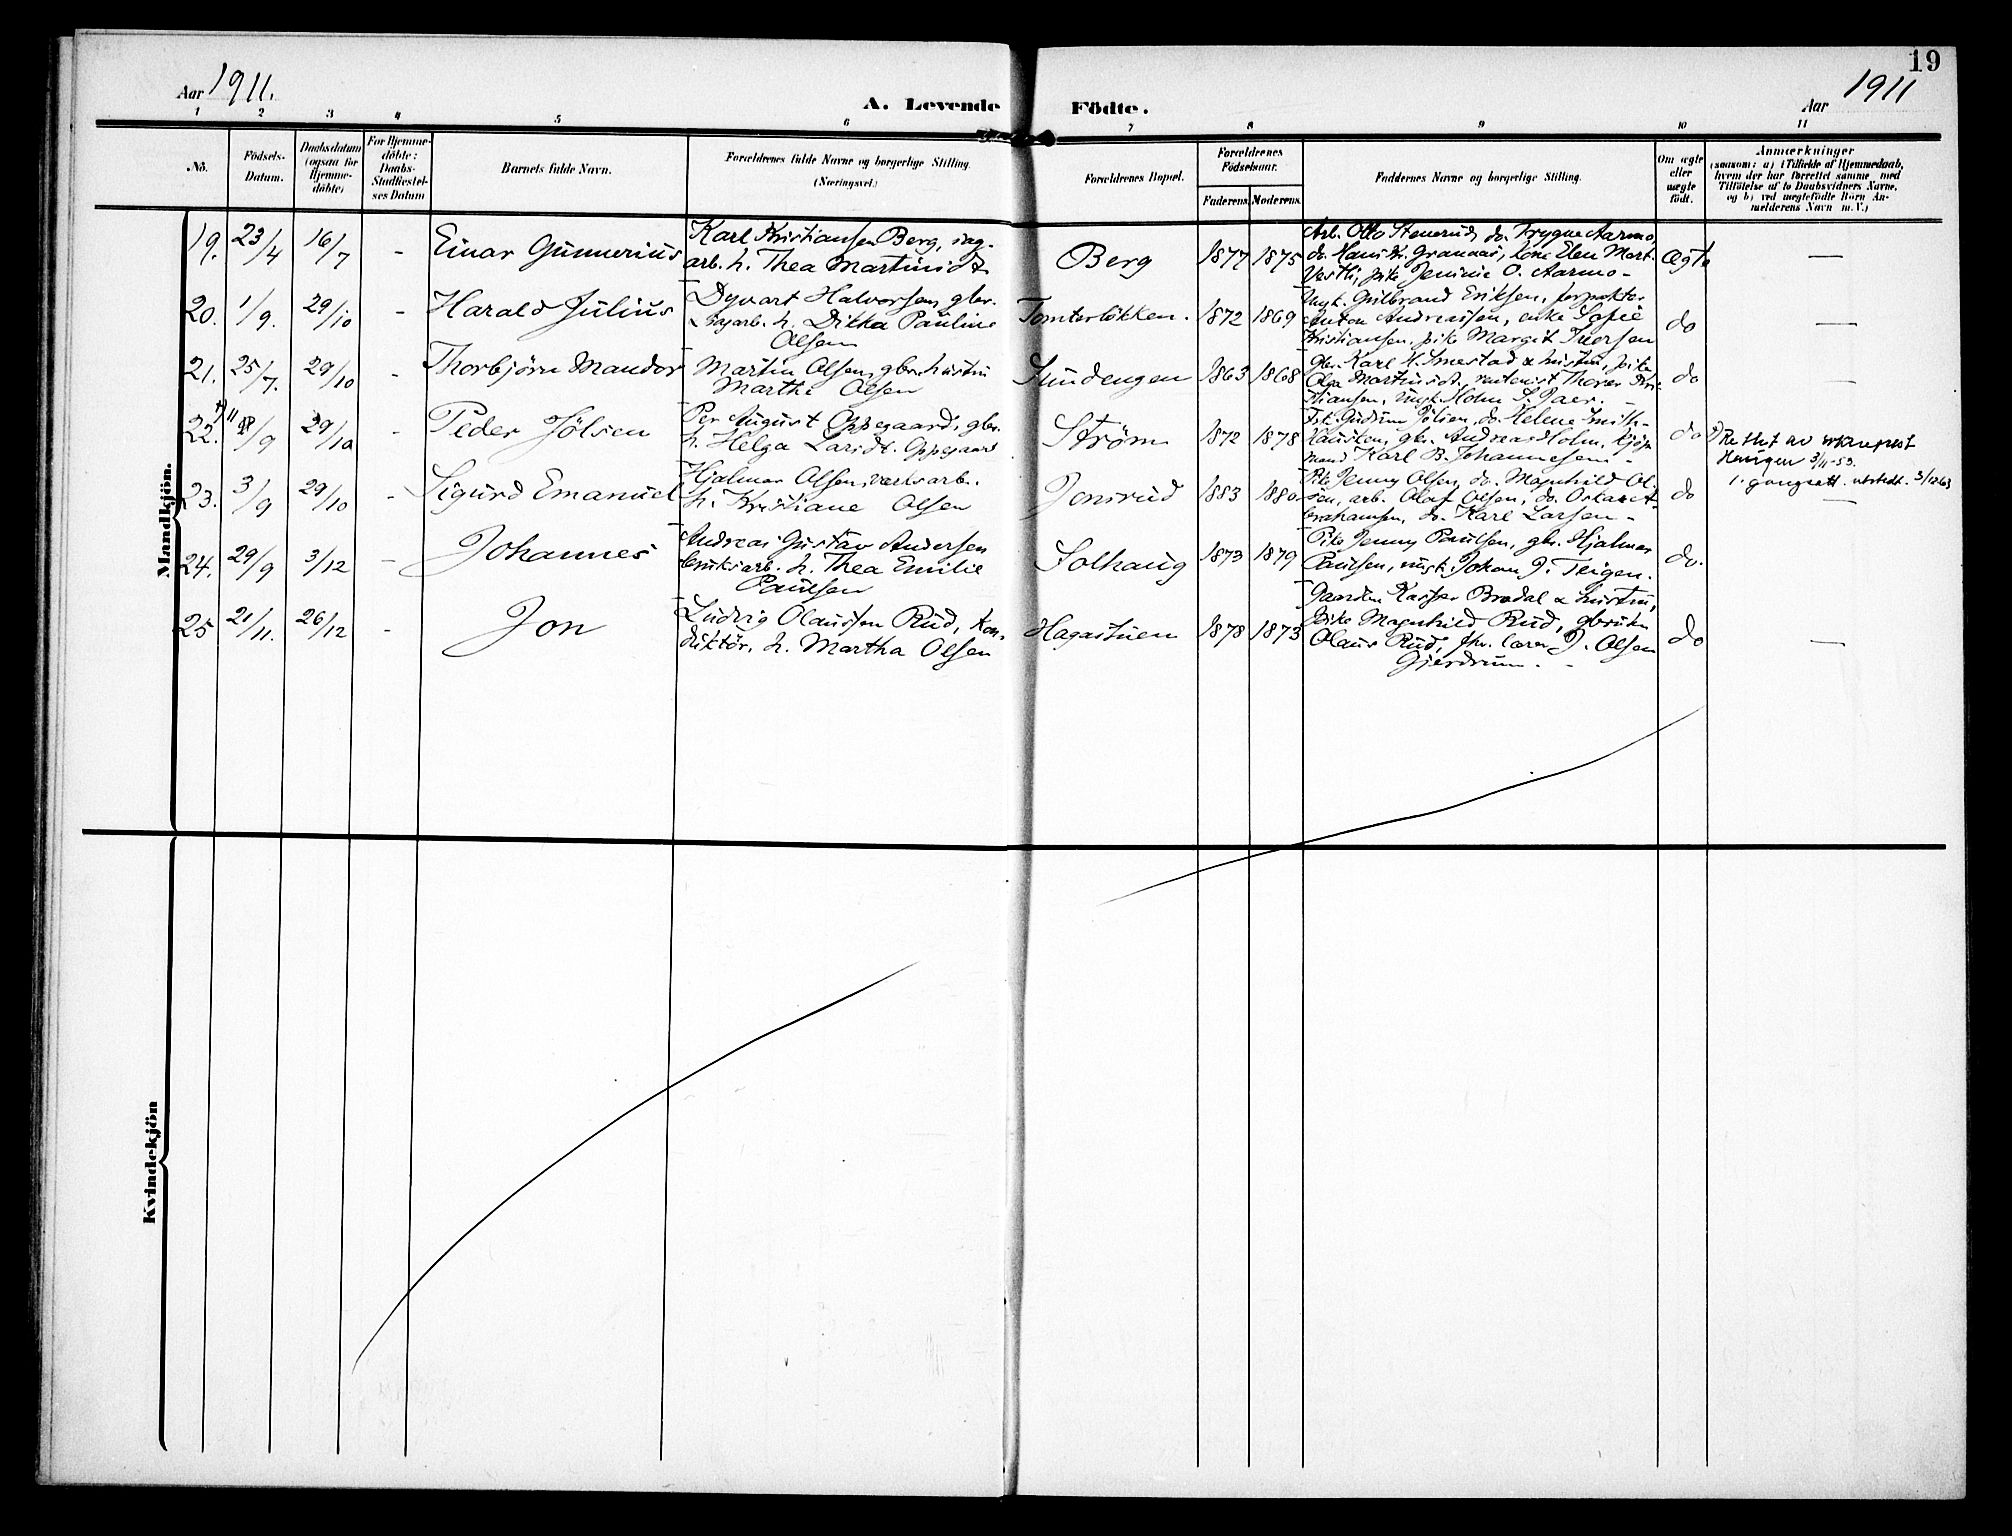 19
Aar 1911.
A. Levende Födte.
Aar 1911
1 2 3 4 5 6 7 8 9 10 11
No.
Födsels-
Datum.
Daabsdatum
(ogsaa for
Hjemme-
döbte)
For Hjemme-
döbte:
Daabs-
Stadfæstel-
ses Datum
Barnets fulde Navn.
Forældrenes fulde Navne og borgerlige Stilling.
(Næringsvei.)
Forældrenes Bopæl.
Forældrenes
Födselsaar.
Faderens Moderens
Faddernes Navne og borgerlige Stilling.
Om ægte
eller
uægte
födt.
Anmærkninger
(saasom: a) i Tilfælde af Hjemmedaab,
hvem der har forrettet samme, med
Tilföielse af to Daabsvidners Navne,
og b) ved uægtefödte Börn An-
melderens Navn m. V.)
Mandkjön.
19. 23/4 16/7 - Einar Gunnerius
Karl Kristiansen Berg, sag-
arb. h. Thea Martinsdt.
Berg 1877 1875
Arb. Otto Stenerud, do. Trygve Aarmo,
do. Hans Kr. Granaas, kone Elen Mart.
Vestli, pike Jeninie O. Aarmo -
Ægte —
20. 1/9. 29/10 - Harald Julius
Dyvart Halvorsen, gbr.
& sagarb. h. Dikka Pauline
Olsen
Tomterløkken. 1872 1869
Ungk. Gulbrand Eriksen, forpakter
Anton Andreassen, enke Sofie
Kristiansen, pike Margit Iversen
do —
21. 25/7. 29/10 - Thorbjørn Mandor
Martin Olsen, gbr. hustru
Marthe Olsen
Sundengen 1863 1868
gbr. Karl H. Smestad & hustru, pike
Olga Martinsdt., rentenist Thorer Kri-
stiansen, ungk. Holm S. Gaer. -
do —
22. 11/9 29/10 - Peder Jölsen
Per August Oppegaard, gbr.
h. Helga Larsdt. Oppegaard
Strøm 1872 1878
Frk. Gudrun Jölsen, do. Helene Smith-
Hausken, gbr. Andreas Holm, kjøp-
mand Karl B. Johannesen -
do
Rettet av sokneprest
3/11-53.
1. gangsatt. utstedt. 3/12 63
23. 3/9 29/10 - Sigurd Emanuel
Hjalmar Olsen, verksarb.
h. Kristiane Olsen
Jensrud 1883 1880
Pike Jenny Olsen, do. Magnhild Ol-
sen, arb. Olaf Olsen, do. Oskar A-
brahamsen, do. Karl Larsen -
do —
24. 29/9 3/12 - Johannes
Andreas Gustav Andersen
bruksarb. h. Thea Emilie
Paulsen
Solhaug 1873 1879
Pike Jenny Paulsen, gbr. Hjalmar
Paulsen, ungk. Johan J. Teigen.
do.
25 21/11. 26/12 - Jon
Ludvig Olaussen Rud, kon-
duktör, h. Martha Olsen
Hagastuen 1878 1873
Gaardm Kasper Bradal & hustru,
Pike Magnhild Rud, gbruker
Olaus Rud, fhv. lærer J. Olsen
Gjerdrum. -
do —
Kvindekjön